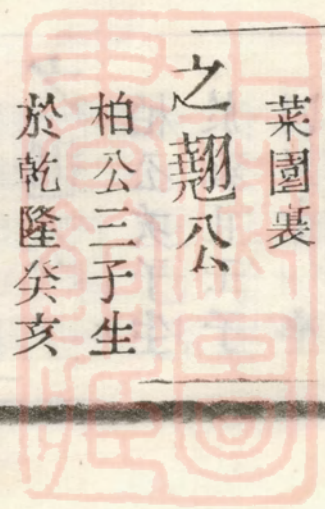 菜園裏
之翹公
柏公三子生
於乾隆癸亥